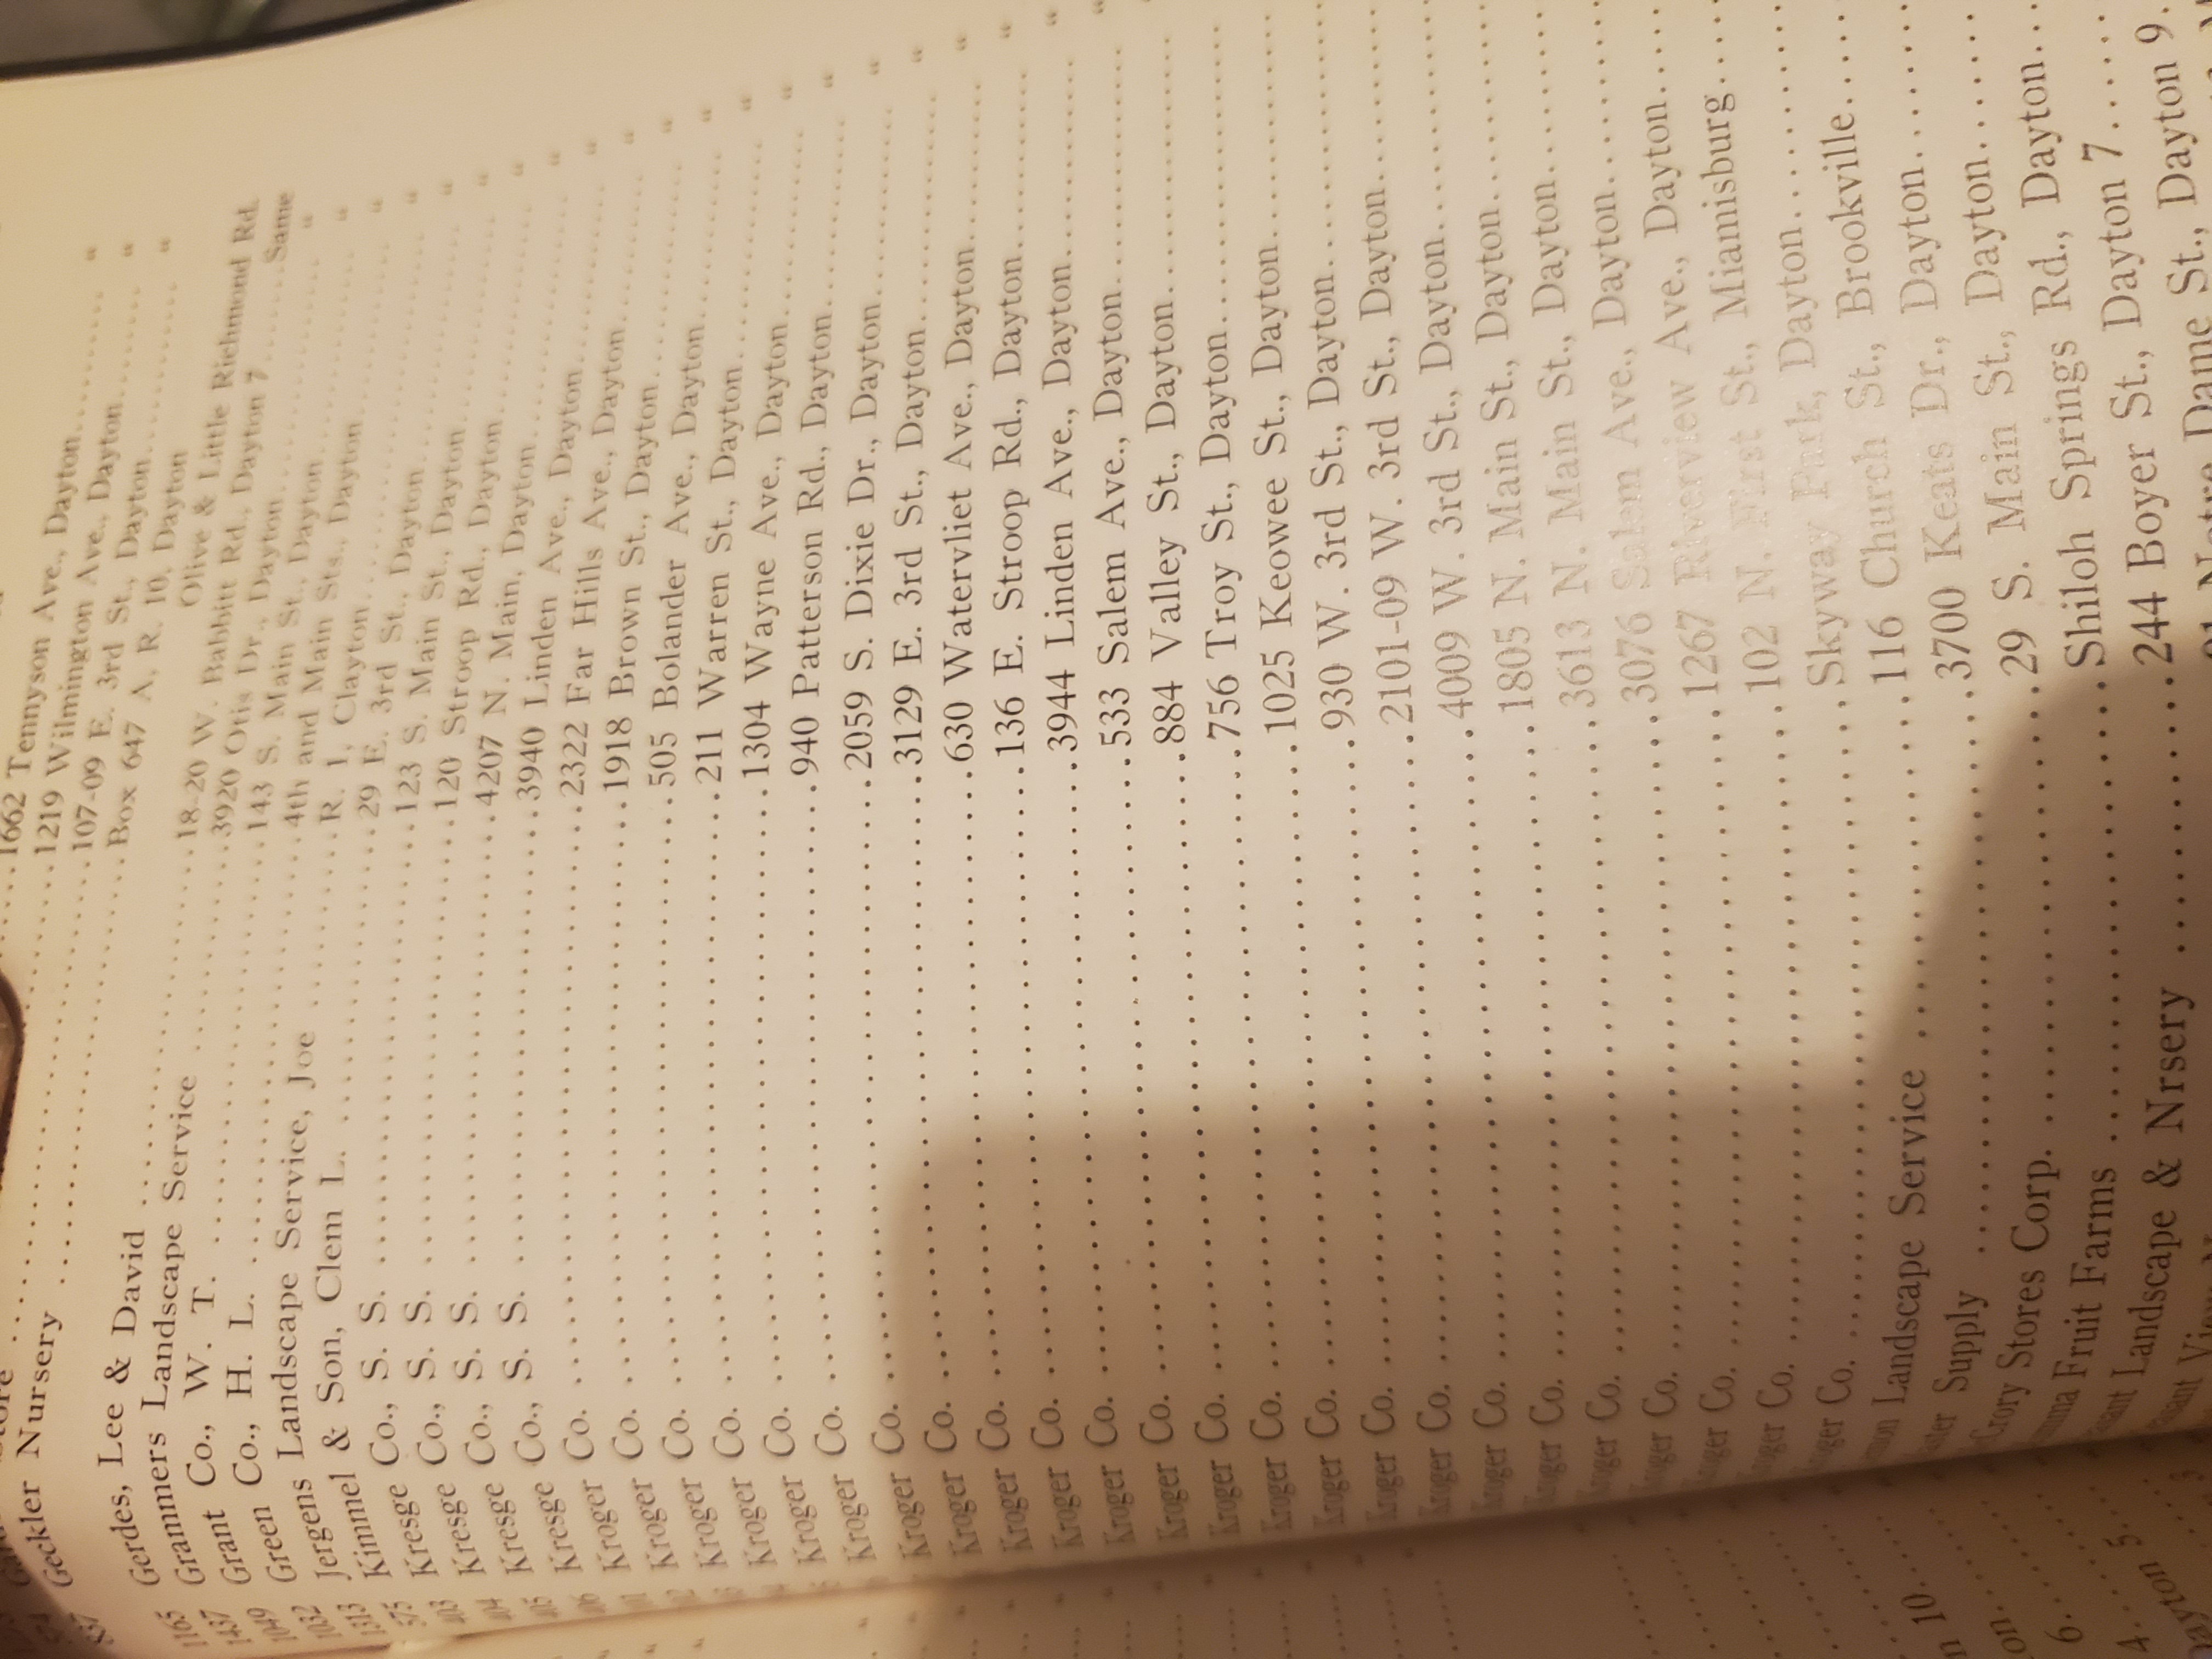 1662 Tennyson Ave., Dayton.......... "
1219 Wilmington Ave., Dayton.......... "
Store ..........107-09 E. 3rd St., Dayton.......... "
Geckler Nursery ..........Box 647 A, R. 10, Dayton
Olive & Little Richmond Rd.
1165 Gerdes, Lee & David ..........18-20 W. Babbitt Rd., Dayton 7..........Same
1437 Grammers Landscape Service ..........3920 Otis Dr., Dayton.......... "
1049 Grant Co., W. T. ..........143 S. Main St., Dayton.......... "
1032 Green Co., H. L. ..........4th and Main Sts., Dayton.......... "
1313 Jergens Landscape Service, Joe ..........R. 1, Clayton.......... "
575 Kimmel & Son, Clem L. ..........29 E. 3rd St., Dayton.......... "
403 Kresge Co., S. S. ..........123 S. Main St., Dayton.......... "
404 Kresge Co., S. S. ..........120 Stroop Rd., Dayton.......... "
405 Kresge Co., S. S. ..........4207 N. Main, Dayton.......... "
406 Kresge Co., S. S. ..........3940 Linden Ave., Dayton.......... "
Kroger Co. ..........2322 Far Hills Ave., Dayton.......... "
Kroger Co. ..........1918 Brown St., Dayton.......... "
Kroger Co. ..........505 Bolander Ave., Dayton.......... "
Kroger Co. ..........211 Warren St., Dayton.......... "
Kroger Co. ..........1304 Wayne Ave., Dayton.......... "
Kroger Co. ..........940 Patterson Rd., Dayton.......... "
Kroger Co. ..........2059 S. Dixie Dr., Dayton.......... "
Kroger Co. ..........3129 E. 3rd St., Dayton.......... "
Kroger Co. ..........630 Watervliet Ave., Dayton.......... "
Kroger Co. ..........136 E. Stroop Rd., Dayton.......... "
Kroger Co. ..........3944 Linden Ave., Dayton.......... "
Kroger Co. ..........533 Salem Ave., Dayton.......... "
Kroger Co. ..........884 Valley St., Dayton..........
Kroger Co. ..........756 Troy St., Dayton..........
Kroger Co. ..........1025 Keowee St., Dayton..........
Kroger Co. ..........930 W. 3rd St., Dayton..........
Kroger Co. ..........2101-09 W. 3rd St., Dayton..........
Kroger Co. ..........4009 W. 3rd St., Dayton..........
Kroger Co. ..........1805 N. Main St., Dayton..........
Kroger Co. ..........3613 N. Main St., Dayton..........
Kroger Co. ..........3076 Salem Ave., Dayton..........
Kroger Co. ..........1267 Riverview Ave., Dayton..........
Kroger Co. ..........102 N. First St., Miamisburg..........
Kroger Co. ..........Skyway Park, Dayton..........
Landscape Service ..........116 Church St., Brookville..........
Supply ..........3700 Keats Dr., Dayton..........
Crory Stores Corp. ..........29 S. Main St., Dayton..........
Fruit Farms ..........Shiloh Springs Rd., Dayton..........
Landscape & Nrsery ..........244 Boyer St., Dayton 7..........
Notre Dame St., Dayton 9..........